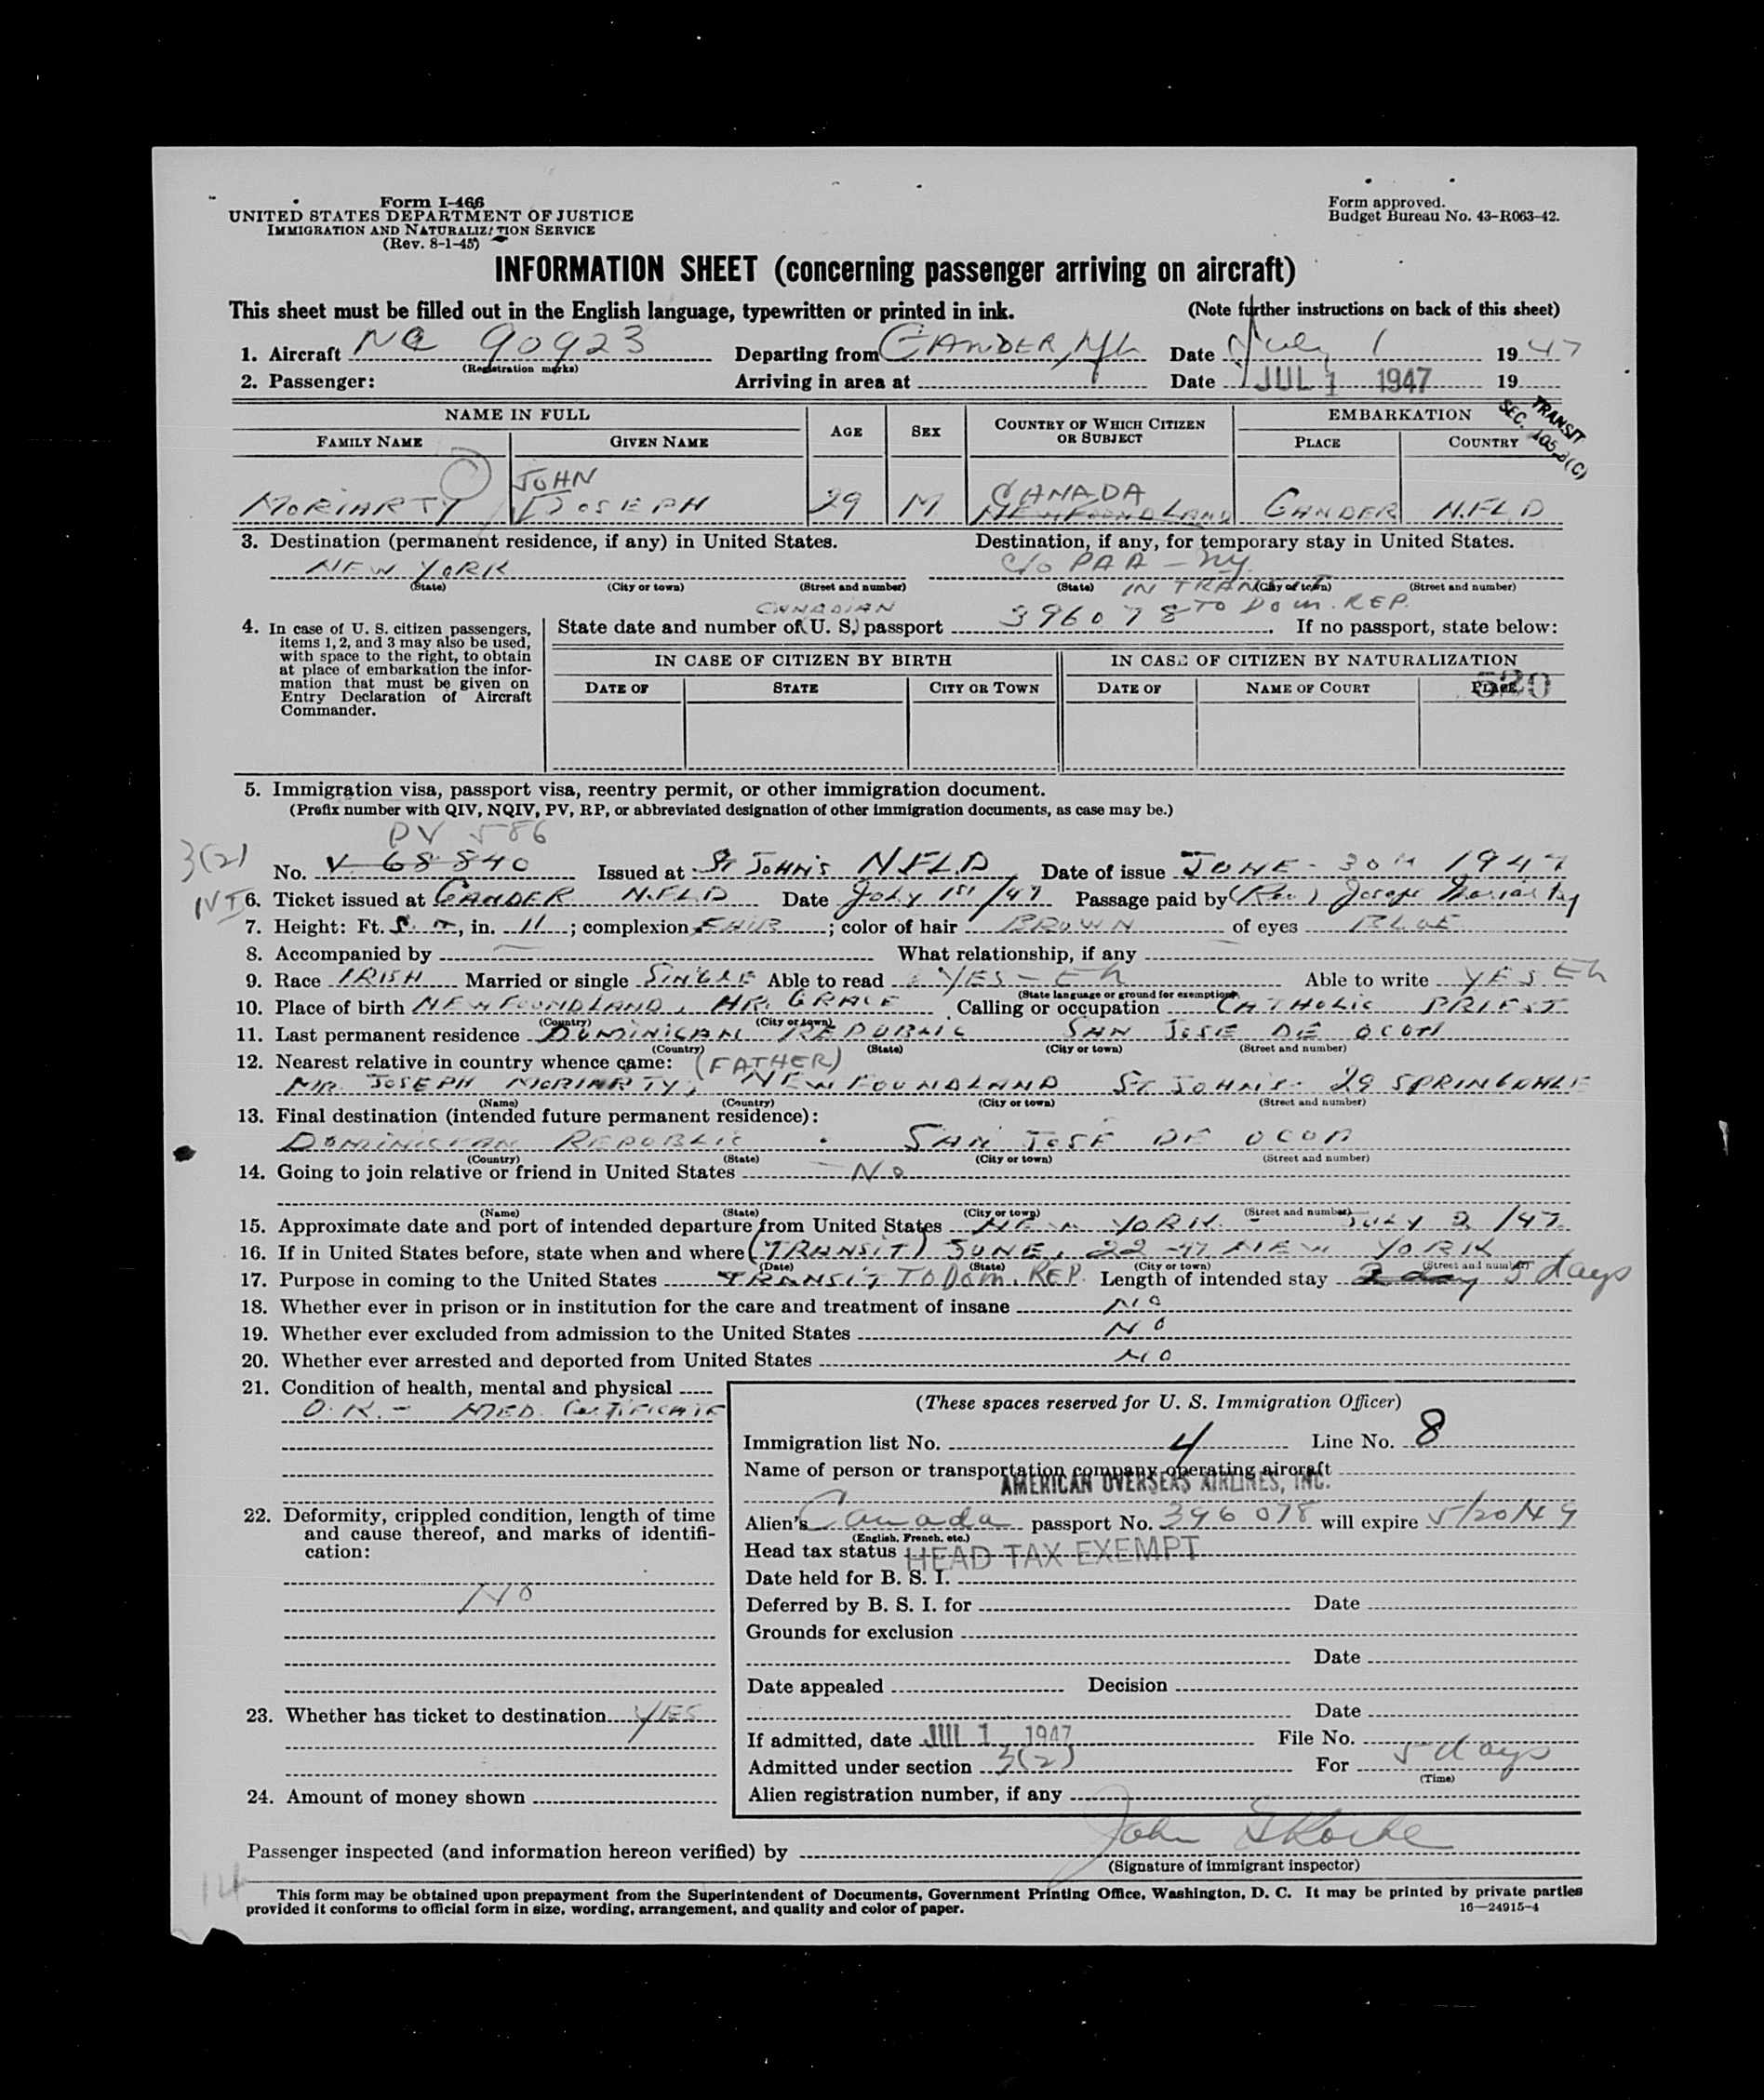 Form I-466
UNITED STATES DEPARTMENT OF JUSTICE
IMMIGRATION AND NATURALIZATION SERVICE
(Rev. 8-1-45)
Form approved.
Budget Bureau No. 43-R063-42.
INFORMATION SHEET (concerning passenger arriving on aircraft)
This sheet must be filled out in the English language, typewritten or printed in ink. (Note further instructions on back of this sheet)
1. Aircraft NC 90923 Departing from GANDER, Nfl Date July 1 1947
(Registration marks)
2. Passenger: Arriving in area at Date JUL 1 1947 19
TRANSIT
SEC. 105.3(C)
NAME IN FULL AGE SEX COUNTRY OF WHICH CITIZEN OR SUBJECT EMBARKATION
FAMILY NAME GIVEN NAME PLACE COUNTRY
JOHN CANADA
MORIARTY JOSEPH 29 M NEWFOUNDLAND GANDER N.FLD
3. Destination (permanent residence, if any) in United States. Destination, if any, for temporary stay in United States.
NEW YORK c/o PAA - NY
(State) (City or town) (Street and number) (State) IN TRANSIT (City or town) (Street and number)
CANADIAN TO DOM. REP.
4. In case of U. S. citizen passengers, items 1, 2, and 3 may also be used, with space to the right, to obtain at place of embarkation the information that must be given on Entry Declaration of Aircraft Commander.
State date and number of (U. S.) passport 396078. If no passport, state below:
IN CASE OF CITIZEN BY BIRTH IN CASE OF CITIZEN BY NATURALIZATION
DATE OF STATE CITY OR TOWN DATE OF NAME OF COURT PLACE
520
5. Immigration visa, passport visa, reentry permit, or other immigration document.
(Prefix number with QIV, NQIV, PV, RP, or abbreviated designation of other immigration documents, as case may be.)
PV 586
3(2)
No. V 68840 Issued at St JOHN'S NFLD Date of issue JUNE - 30TH 1947
6. Ticket issued at GANDER N.FLD Date July 1st/47 Passage paid by (Rev.) Joseph Moriarty
7. Height: Ft. 5, in. 11; complexion FAIR; color of hair BROWN of eyes BLUE
8. Accompanied by What relationship, if any
9. Race IRISH Married or single SINGLE Able to read YES - Eh Able to write YES Eh
(State language or ground for exemption)
10. Place of birth NEWFOUNDLAND, HR. GRACE Calling or occupation CATHOLIC PRIEST
(Country) (City or town)
11. Last permanent residence DOMINICAN REPUBLIC SAN JOSE DE OCOA
(Country) (State) (City or town) (Street and number)
12. Nearest relative in country whence came: (FATHER)
MR. JOSEPH MORIARTY, NEWFOUNDLAND ST. JOHN'S - 29 SPRINGDALE
(Name) (Country) (City or town) (Street and number)
13. Final destination (intended future permanent residence):
DOMINICAN REPUBLIC . SAN JOSE DE OCOA
(Country) (State) (City or town) (Street and number)
14. Going to join relative or friend in United States - No
(Name) (State) (City or town) (Street and number)
15. Approximate date and port of intended departure from United States NEW YORK - JULY 2/47
16. If in United States before, state when and where (TRANSIT) JUNE, 22 -47 NEW YORK
(Date) (State) (City or town) (Street and number)
17. Purpose in coming to the United States TRANSIT TO DOM. REP. Length of intended stay 2 day 5 days
18. Whether ever in prison or in institution for the care and treatment of insane NO
19. Whether ever excluded from admission to the United States NO
20. Whether ever arrested and deported from United States NO
21. Condition of health, mental and physical
O.K. - MED. CERTIFICATE
22. Deformity, crippled condition, length of time and cause thereof, and marks of identification:
NO
23. Whether has ticket to destination YES
24. Amount of money shown
(These spaces reserved for U. S. Immigration Officer)
Immigration list No. 4 Line No. 8
Name of person or transportation company operating aircraft
AMERICAN OVERSEAS AIRLINES, INC.
Alien's Canada passport No. 396078 will expire 5/20/49
(English, French, etc.)
Head tax status HEAD TAX EXEMPT
Date held for B. S. I.
Deferred by B. S. I. for Date
Grounds for exclusion
Date
Date appealed Decision
Date
If admitted, date JUL 1 1947 File No.
Admitted under section 3(2) For 5 days
(Time)
Alien registration number, if any
Passenger inspected (and information hereon verified) by John
(Signature of immigrant inspector)
14
This form may be obtained upon prepayment from the Superintendent of Documents, Government Printing Office, Washington, D. C. It may be printed by private parties
provided it conforms to official form in size, wording, arrangement, and quality and color of paper.
16—24915-4